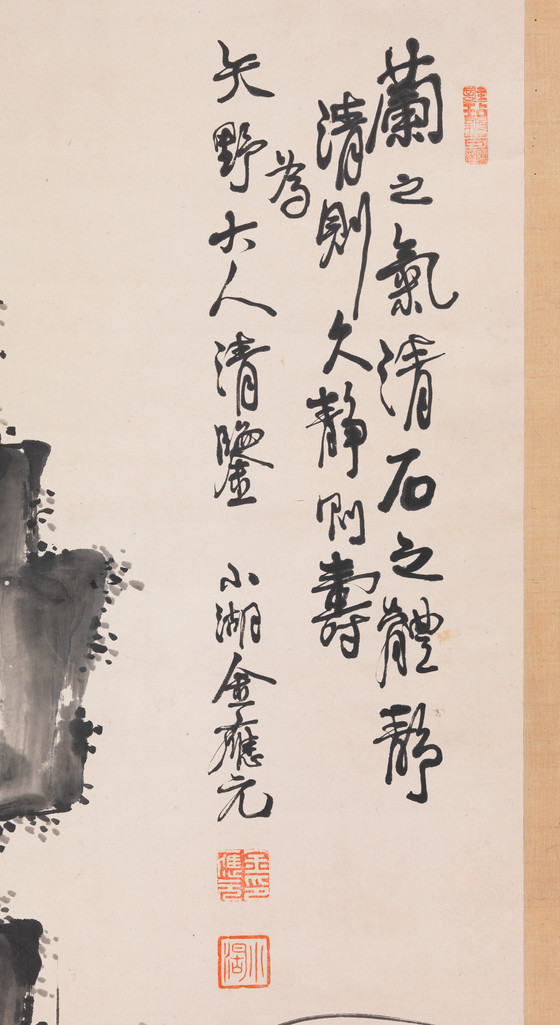 蘭之氣清石之體靜
清則久靜則壽
為
矢野大人清鑒 小湖金應元
小湖